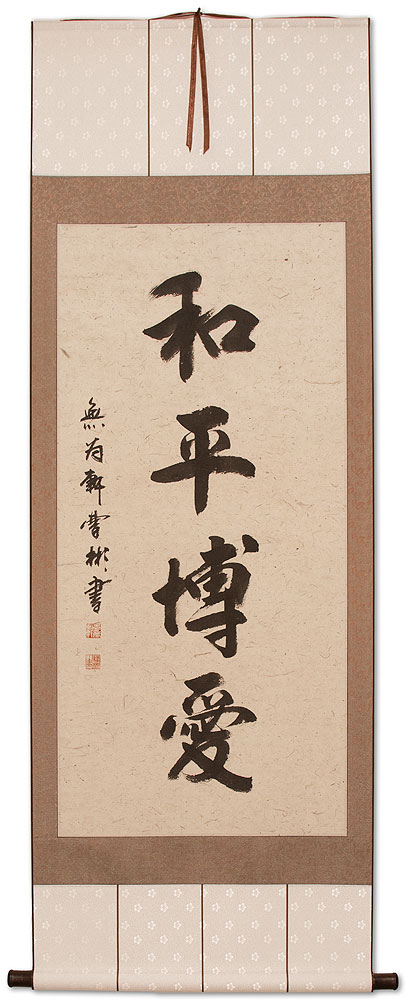 和平博愛
無為軒曹彬書